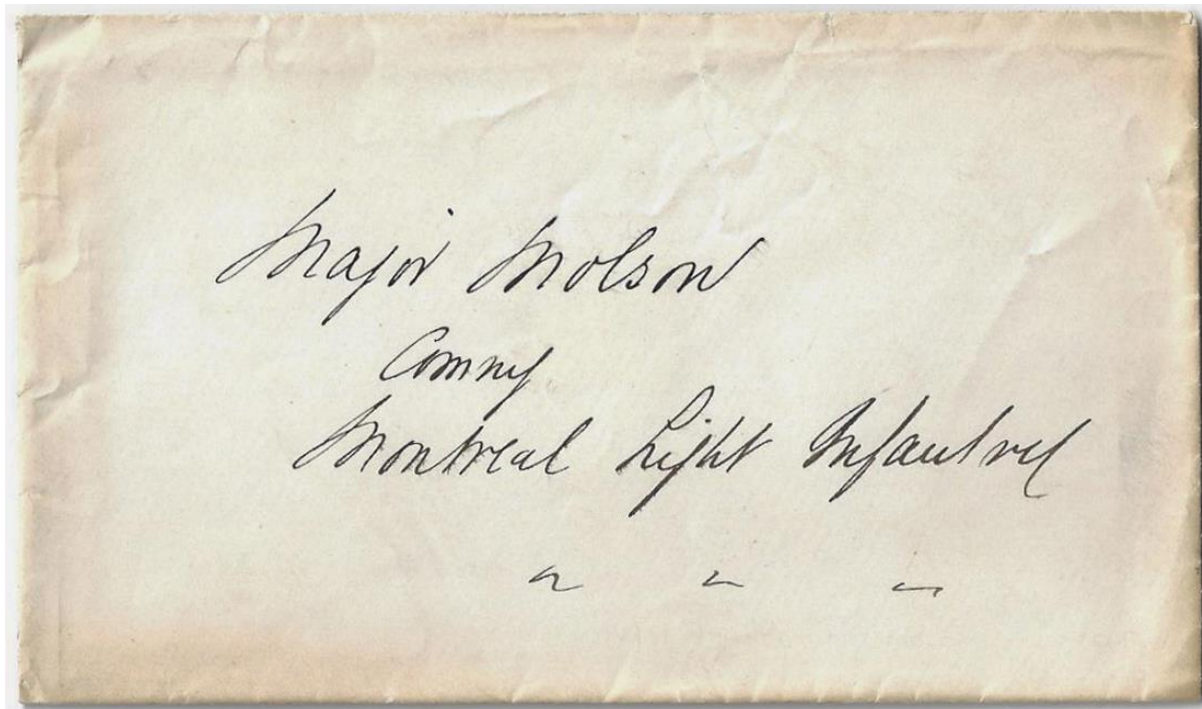 Major Molson
Comng
Montreal Light Infantry